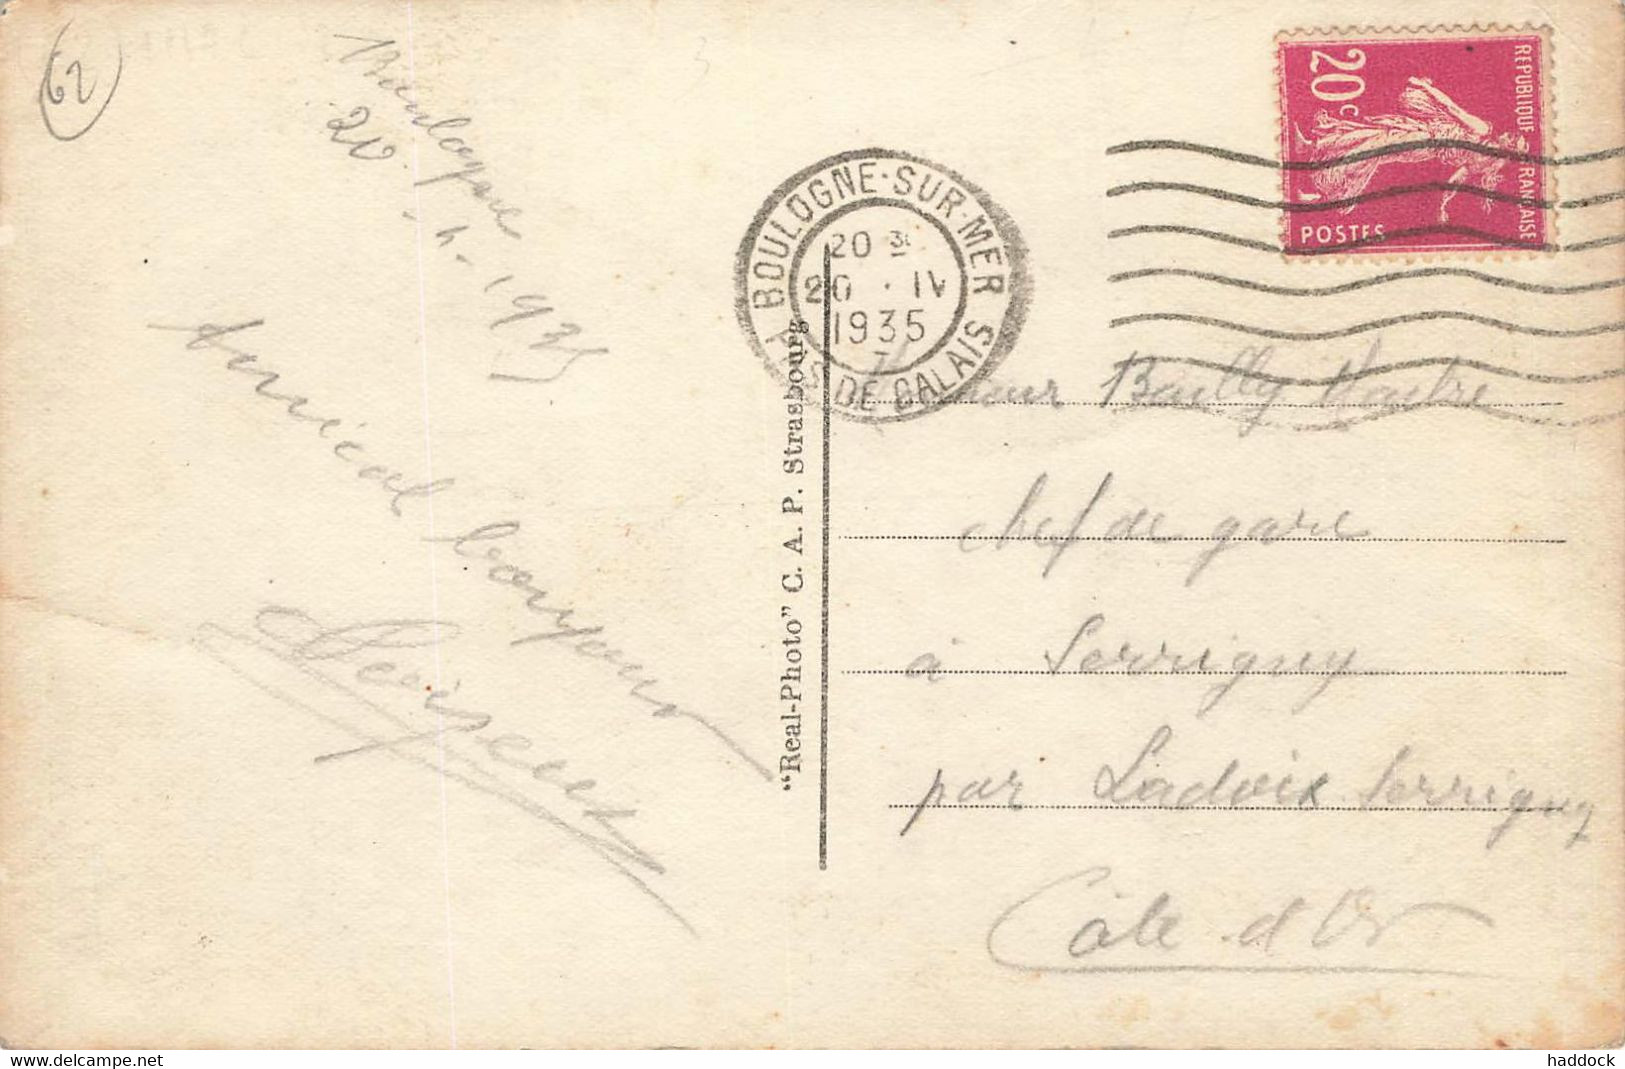 62
Boulogne
20.4.1935
Amical bonjour
REPUBLIQUE FRANÇAISE
20c
POSTES
BOULOGNE-SUR-MER
20 30
20 · IV
1935
PAS DE CALAIS
"Real-Photo" C. A. P. Strasbourg
Monsieur Bailly
chef de gare
à Serrigny
par Ladoix Serrigny
Côte d'Or
www.delcampe.net
haddock